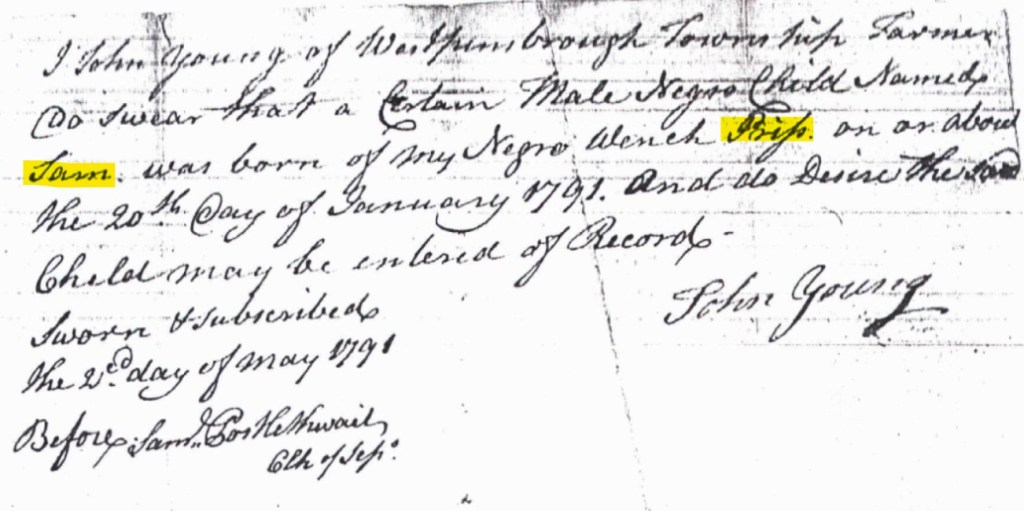 I John Young of Westpensbrough Township Farmer
Do swear that a Certain Male Negro Child Named
Sam. was born of my Negro Wench Priss. on or about
the 20th Day of January 1791. And do Desire the said
Child may be entered of Record -
John Young
Sworn & Subscribed
the 2d. day of May 1791
Before Saml. Postlethwait
Clk of Sess.